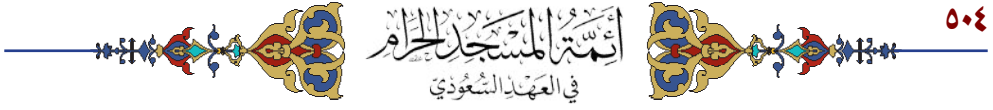 ٥٠٤
أَئِمَّةُ المَسْجِدِ الحَرَامِ
في العَهْدِ السُّعُودِيّ